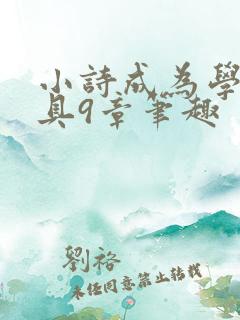 小詩成為學
具9章筆趣
劉裕
未經同意禁止轉載